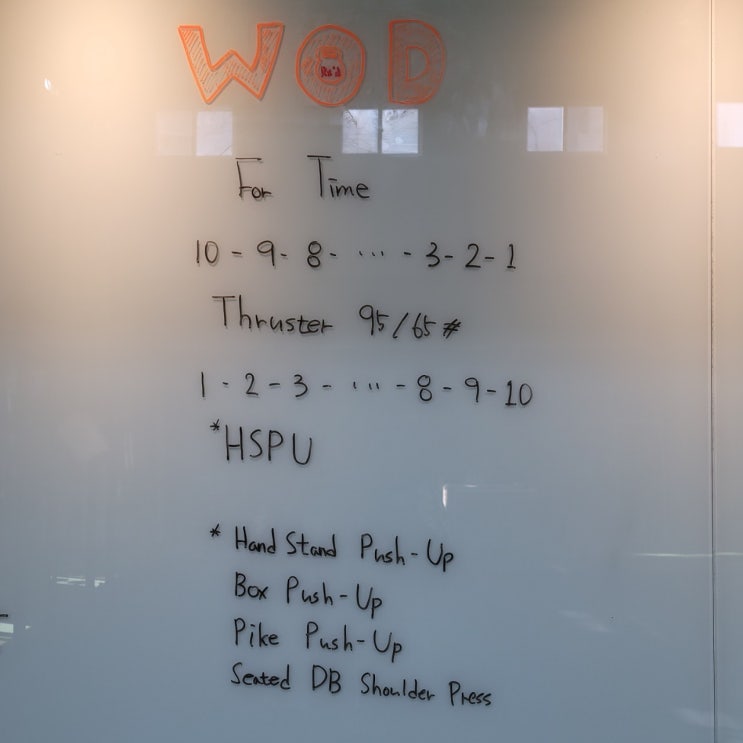 WOD
Rx'd
For Time
10 - 9 - 8 - ... - 3 - 2 - 1
Thruster 95/65#
1 - 2 - 3 - ... - 8 - 9 - 10
*HSPU
* Hand Stand Push-Up
Box Push-Up
Pike Push-Up
Seated DB Shoulder Press